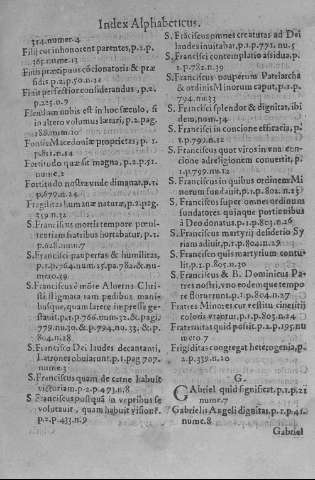 Index Alphabeticus.
314.numer.4
Filij cur inhonorent parentes, p.1.p.
365.nume.13
Finis præcipuus cōcionatoris & præ
sidis p.2.p.50.n.14
Finis perfectior considerandus, p.2.
p.225.n.9
Flendum nobis est in hoc sæculo, si
in altero volumus lætari, p.2.pag.
188.num.10
Fontis Macedoniæ proprietas, p.1.
p.811.n.14
Fortitudo quæ sit magna, p.2.p.51.
nume.2
Fortitudo nostra vnde dimanat, p.1.
p.679.n.24
Fragilitas humanæ naturæ, p.2.pag.
259.n.32
S. Franciscus mortis tempore pœni-
tentiam fratribus hortabatur, p.1.
p.628.num.7
S. Francisci paupertas & humilitas,
p.1.p.764.num.25.pa.782.& nu-
mero.39
S. Franciscus è mōte Aluerna Chri-
sti stigmata tam pedibus mani-
busque, quam latere impressa ge-
stauit.p.1.p.766.num.32.& pagi.
779.nu.30.& p.794.nu.33. & p.
804.n.28
S. Francisco Dei laudes decantanti,
Latrones obuiarunt.p.1.pag.707.
nume.3
S. Franciscus quam de carne habuit
victoriam.p.2.p.473.n.8
S. Franciscus postquā in vepribus se
volutauit, quam habuit visionē.
p.2.p.433.n.9
S. Frāciscus omnes creaturas ad Dei
laudes inuitabat, p.1.p.771.nu.5
S. Francisci contemplatio assidua,p.
1.p.782.n.39
S. Franciscus pauperum Patriarcha
& ordinis Minorum caput, p.1.p.
794.nu.33
S. Francisci splendor & dignitas, ibi
dem, nom.34
S. Francisci in concione efficacia, p.
1.p.799.n.12
S. Franciscus quot viros in vna con-
cione ad religionem conuertit, p.
1.p.799.nu.12
S. Franciscus in quibus ordinem Mi
norum fundauit, p.1.p.802.n.23
S. Franciscus super omnes ordinum
fundatores quinque portionibus
à Deo donatus, p.1.p.803.n.26
S. Franciscus martyrij desiderio Sy
riam adiuit, p.1.p.804.n.29
S. Francisci quis martyrium contu-
lit.p.2.p.805.n.30
S. Franciscus & B. Dominicus Pa-
tres nostri, vno eodemque tempo
re floruerunt, p.1.p.804.n.27
Fratres Minores cur vestitu cinesitij
coloris vtantur, p.1.p.803.n.24
Fraternitas quid possit, p.2.p.195.nu
mero.7
Frigiditas congregat heterogenia, p.
2.p.339.n.20
G.
GAbriel quid significat, p.1.p.21
nume.7
Gabrielis Angeli dignitas, p.1.p.41.
nume.8
Gabriel